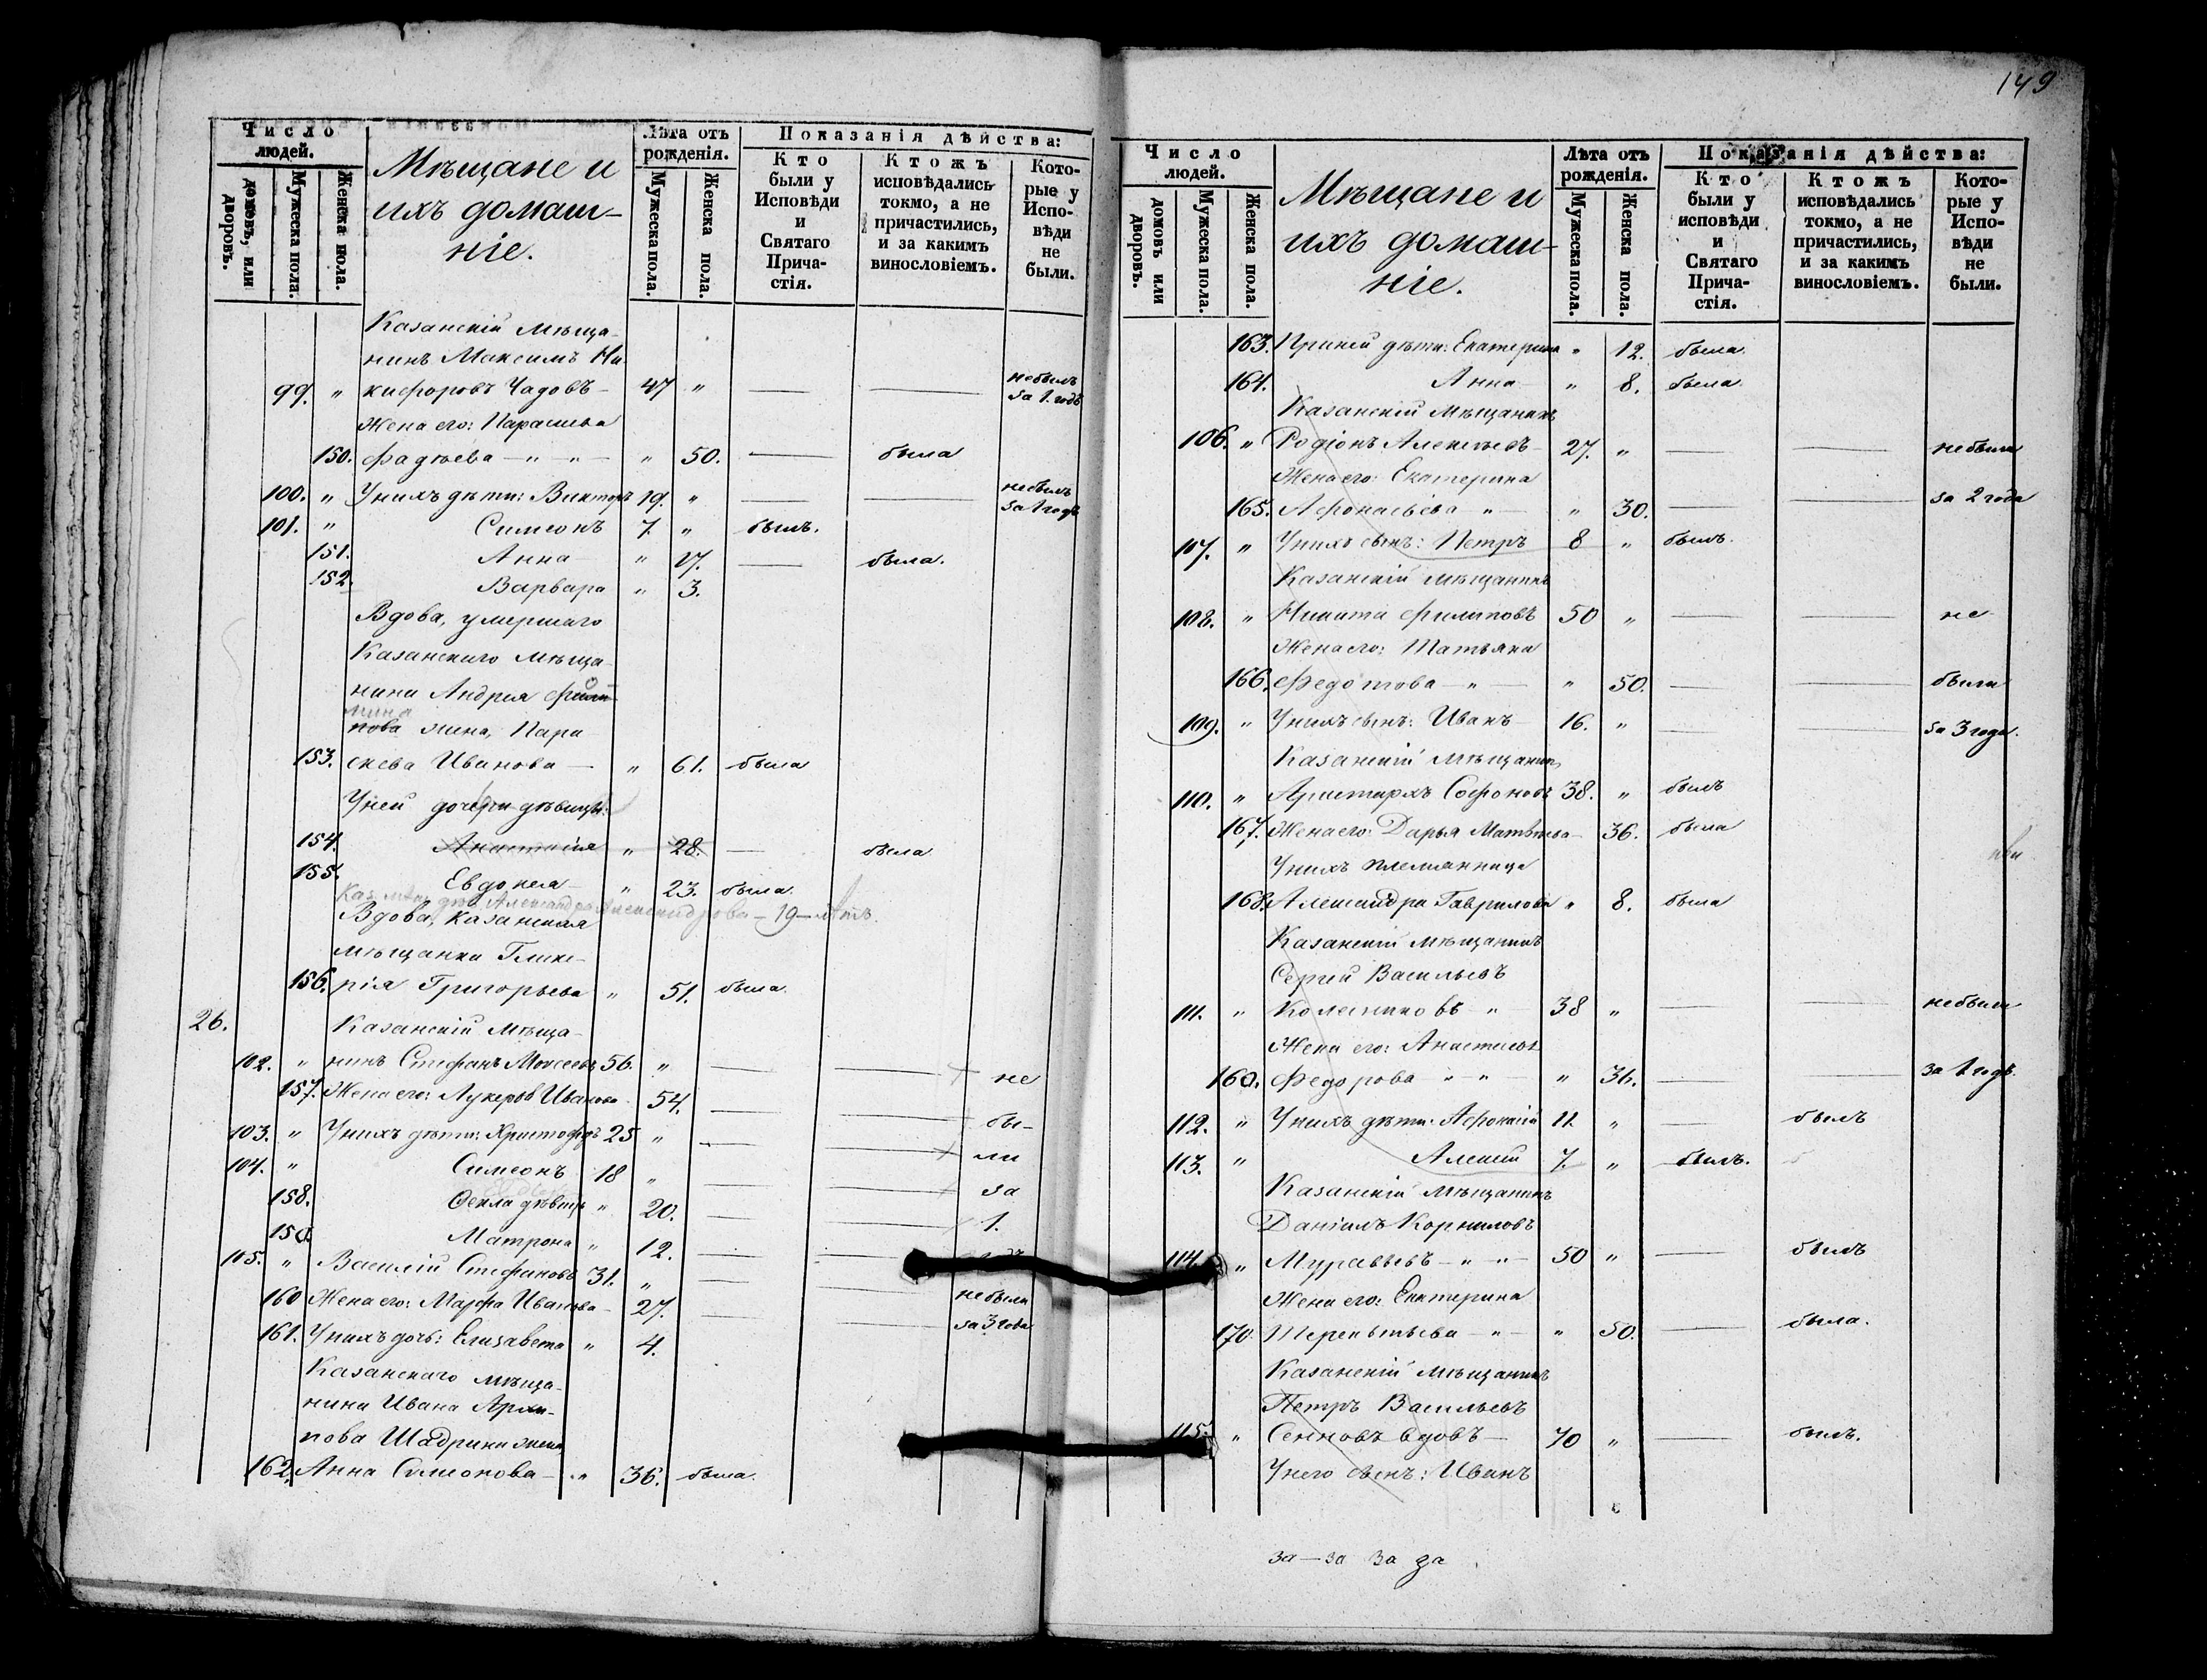 149
Число людей.
домовъ, или дворовъ.
Мужеска пола.
Женска пола.
Мѣщане и
ихъ домаш-
ніе.
Лѣта отъ рожденія.
Мужеска пола.
Женска пола.
Показанія дѣйства:
Кто были у Исповѣди и Святаго Прича-стія.
Ктожъ исповѣдались токмо, а не причастились, и за какимъ винословіемъ.
Кото-рые у Испо-вѣди не были.
Казанскій мѣща-
нинъ Максимъ Ни-
99. " кифоровъ Чадовъ — 47 " — — небылъ за 1. годъ
Жена его: Параскева
150. Фадѣева — " — " — " 50. — была
100. " У нихъ дѣти: Викторъ 19. " — — небылъ за 1 годъ
101. " Симеонъ 7. " былъ.
151. Анна " 17. — была.
152. Варвара " 3.
Вдова, умершаго
Казанскаго мѣща-
нина Андрея
нова жена, Пара-
153. скева Иванова — " 61. была
У ней дочери дѣвицы:
154. Анастасія " 28. — была
155. Евдокея " 23. была.
Каз. мѣщ. Александра Александрова — 19 — лѣтъ.
Вдова, казанская
мѣщанка Глике-
156. рія Григорьева " 51. была.
26. Казанскій мѣща-
102. " нинъ Стефанъ Моисеевъ 56. " — — не
157. Жена его: Лукерья Иванова 54. — — бы-
103. " У нихъ дѣти: Христофоръ 25 " — — ли
104. " Симеонъ 18 " — — за
158. Фекла дѣвица " 20. — — 1.
159. Матрона " 12. — —
105. " Василій Стефановъ 31. " — — небыли
160 Жена его: Марфа Иванова — 27. — — за 3 года
161. У нихъ дочь: Елизавета " 4.
Казанскаго мѣща-
нина Ивана Архи-
пова Шадрина жена
162. Анна Симонова — " 36. была.
Число людей.
домовъ или дворовъ.
Мужеска пола.
Женска пола.
Мѣщане и
ихъ домаш-
ніе.
Лѣта отъ рожденія.
Мужеска пола.
Женска пола.
Показанія дѣйства:
Кто были у исповѣди и Святаго Прича-стія.
Ктожъ исповѣдались токмо, а не причастились, и за какимъ винословіемъ.
Кото-рые у Испо-вѣди не были.
163. При ней дѣти: Екатерина " 12. была.
164. Анна " 8. была.
Казанскій мѣщанинъ
106. " Родіонъ Алексѣевъ 27. " — — небыли
Жена его: Екатерина
165. Афонасьева " — " 30. — — за 2 года
107. " У нихъ сынъ: Петръ 8 " былъ.
Казанскій мѣщанинъ
108. " Никита Филиповъ 50 " — — не
Жена его: Татьяна
166. Федотова — " — " 50. — — были
109. " У нихъ сынъ: Иванъ 16. " — — за 3 года.
Казанскій мѣщанинъ
110. " Аристархъ Софоновъ 38. " былъ
167. Жена его: Дарья Матвѣева 36. была
У нихъ племянница
168. Александра Гаврилова " 8. была
Казанскій мѣщанинъ
Сергей Васильевъ
111. " Колесниковъ " 38 " — — небыли
Жена его: Анастасья
169. Федорова " " — " 36. — — за 1 годъ.
112. " У нихъ дѣти: Афонасій 11 " — былъ
113. " Алексей 7. " былъ.
Казанскій мѣщанинъ
Даніилъ Корниловъ
114. " Муравьевъ — " " — 50 " — былъ
Жена его: Екатерина
170 Терентьева — " — " 50. — была.
Казанскій мѣщанинъ
Петръ Васильевъ
115. " Сенновъ вдовъ — 70 " — былъ.
У него сынъ: Иванъ
за — за за за